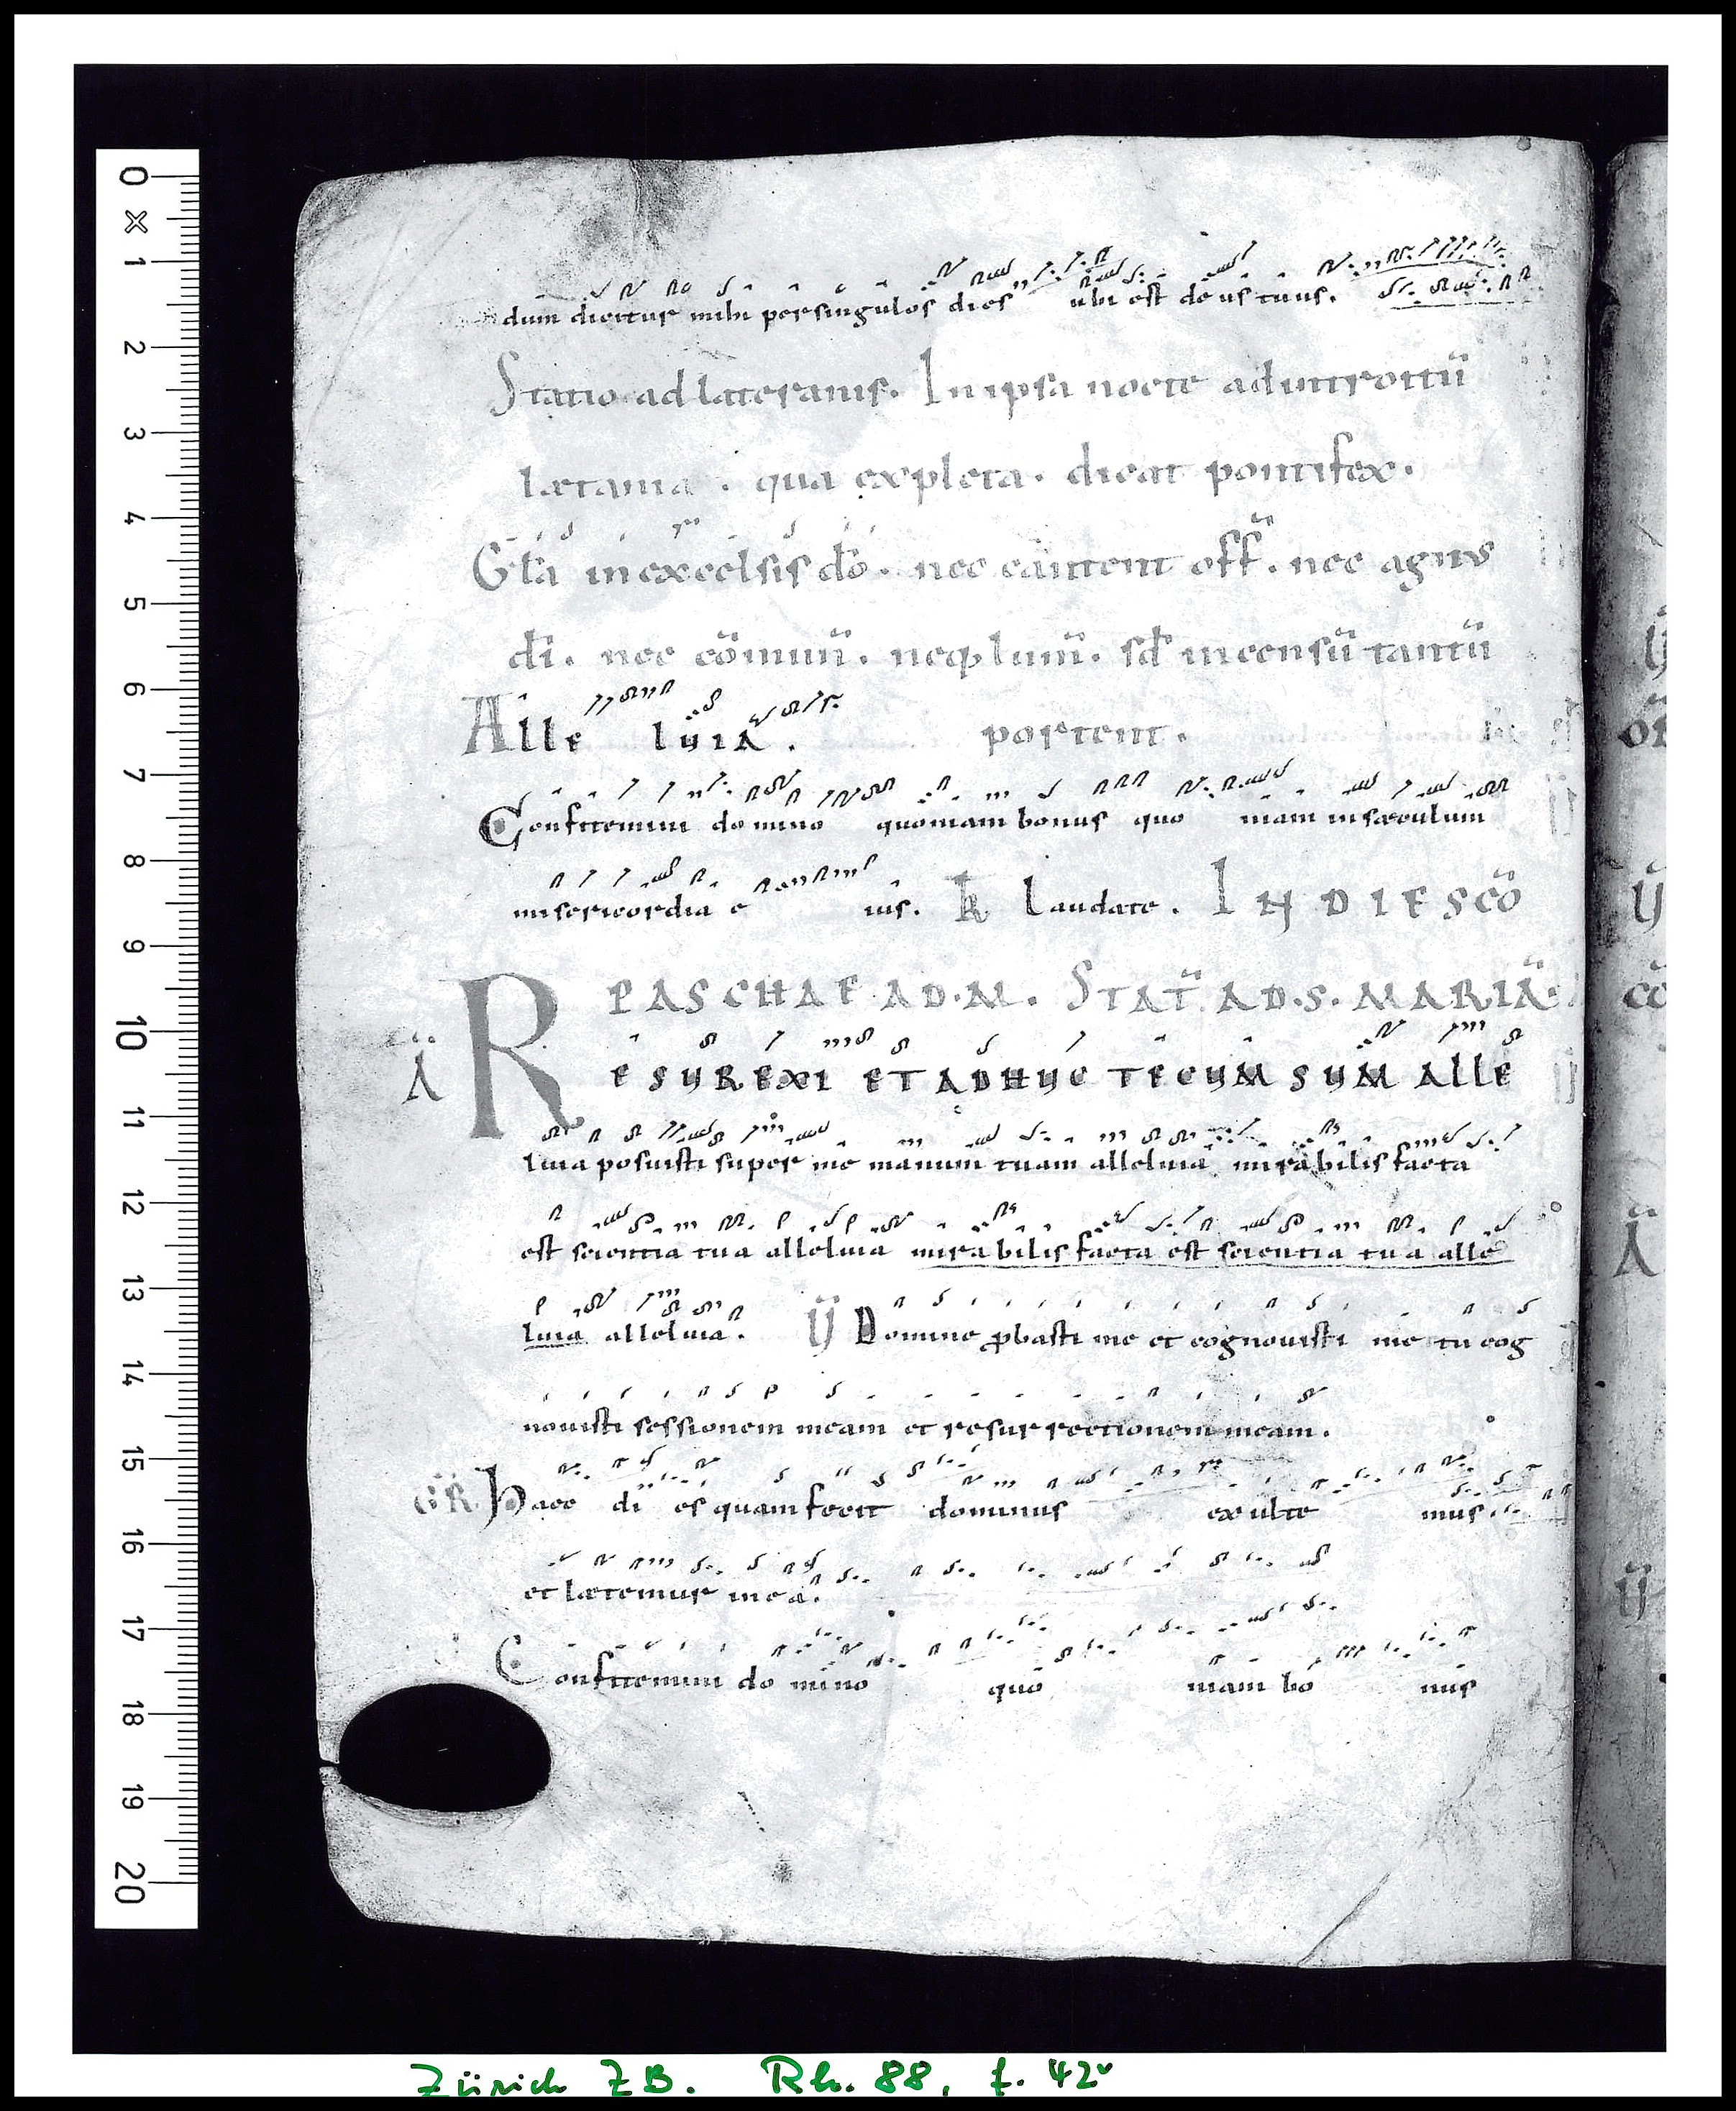 dum dicitur mihi per singulos dies ubi est deus tuus.
Statio ad lateranis. In ipsa nocte ad introitū
lætania. qua expleta. dicat pontifex.
Glā in excelsis dō. nec cantent off. nec agnus
dī. nec cōmuñ. neq; lum̄. sd incensū tantū
Alle luia. portent.
Confitemini domino quoniam bonus quo niam in sæculum
misericordia e ius. Laudate. IN DIE SCŌ
PASCHAE AD.M. STAT AD.S.MARIĀ.
A RESURREXI ET ADHUC TECUM SUM ALLE
luia posuisti super me manum tuam alleluia mirabilis facta
est scientia tua alleluia mirabilis facta est scientia tua alle
luia alleluia. V Domine pbasti me et cognovisti me tu cog
novisti sessionem meam et resurrectionem meam.
GR. Haec di es quam fecit dominus exulte mus.
et lætemur in ea.
Confitemini do mino quo niam bo nus
0 1 2 3 4 5 6 7 8 9 10 11 12 13 14 15 16 17 18 19 20
Zürich ZB. Rh. 88, f. 42v